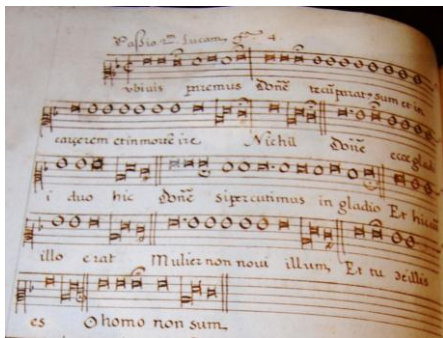 Passio Lucam, 4.
vbivis paremus Dōnē tecū paratꝰ sum et in
carcerem et in mortē ire Nichil Dōnē ecce gladi
i duo hic Dōnē si percutimus in gladio Et hic cū
illo erat Mulier non novi illum, Et tu de illis
es O homo non sum,